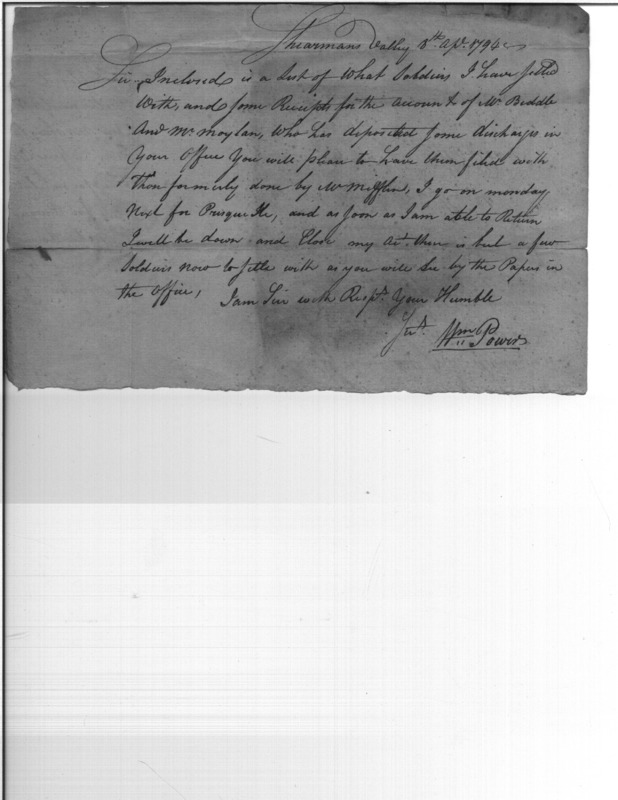 Shearmans Valley 8th Apl. 1794
Sir Inclosed is a List of What Soldiers I have Setled
With, and Some Receipts for the account of Mr Biddle
And Mr Moylan, Who has deposited Some discharges in
Your Office You will please to have them filed with
Thos formerly done by Mr Mifflin, I go on monday
Next for Prusque Ile, and as Soon as I am able to Return
I will be down and Close my Act. there is but a few
Soldiers now to Settle with as you will See by the Papers in
the Office, I am Sir with Respt. Your Humble
Sert. Wm Power